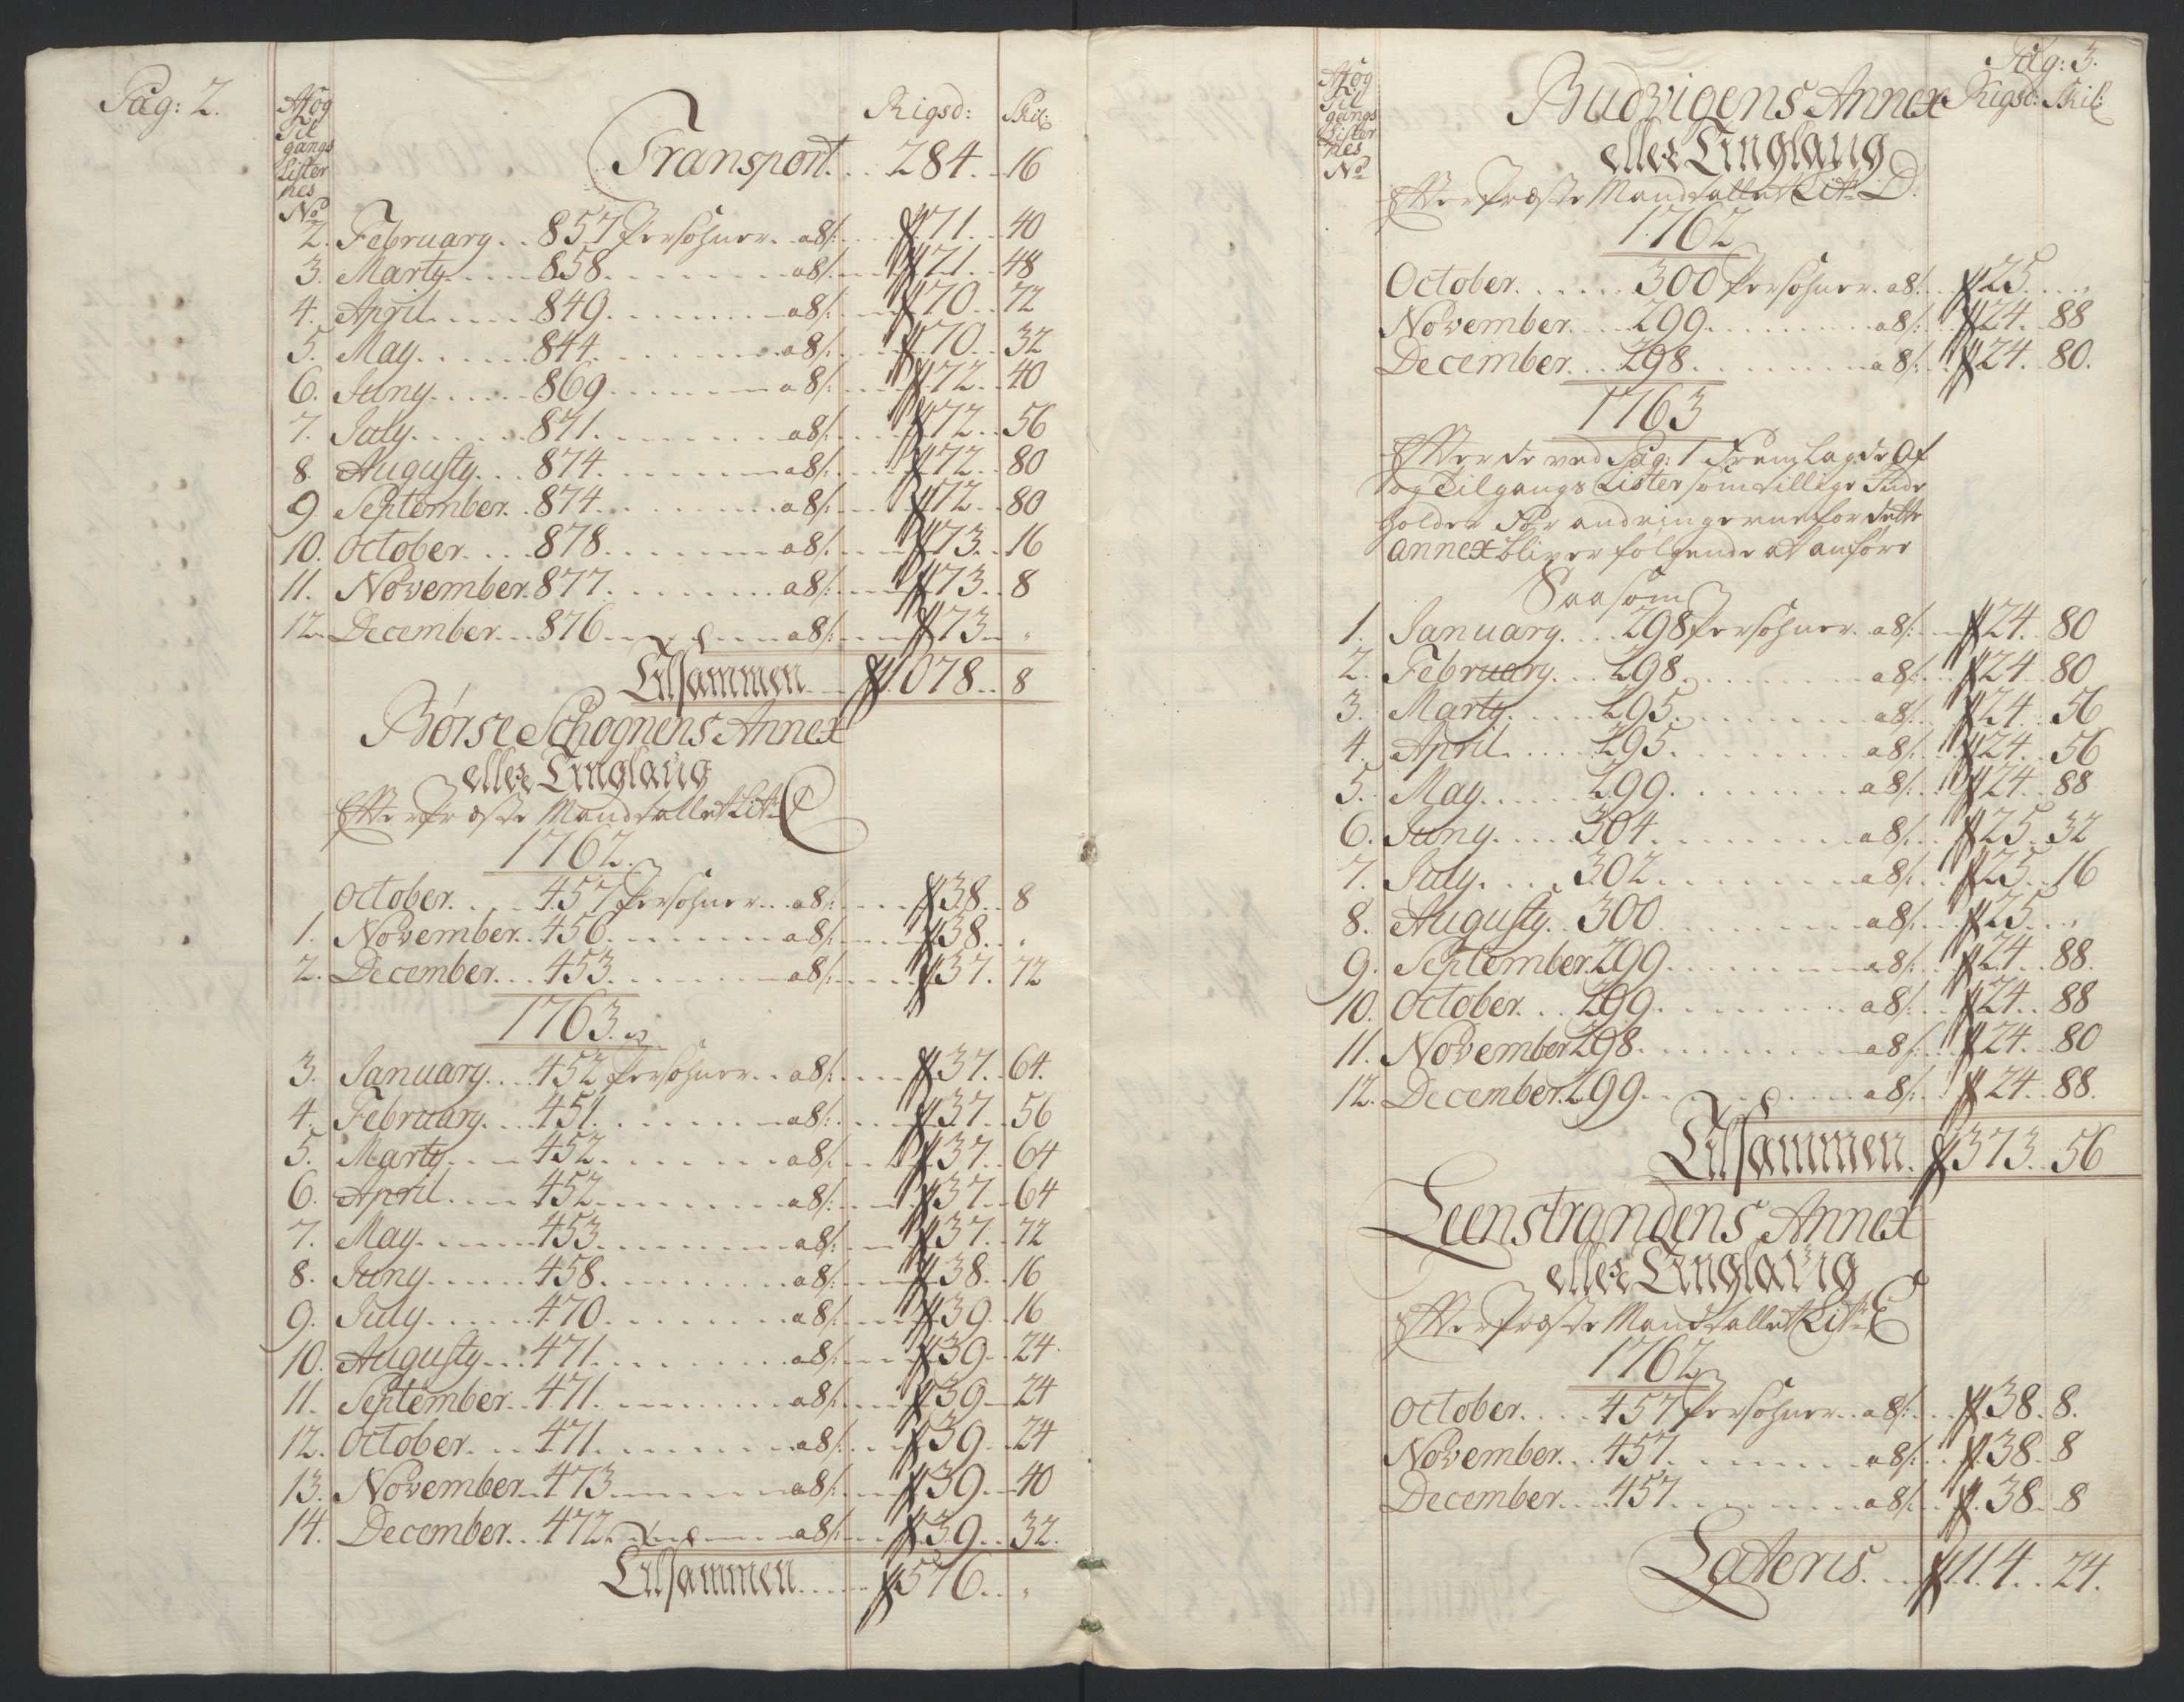 Pag: 2.
Af og
Til
gangs
Lister
nes
No
Rigsd: Skil:
Transport... 284. 16
2. February.. 857 Persohner. a 8 s: 71. 40
3. Marty.... 858. a 8 s: 71. 48
4. April.... 849. a 8 s: 70. 72
5. May..... 844. a 8 s: 70. 32
6. Juny..... 869. a 8 s: 72. 40
7. July..... 871. a 8 s: 72. 56
8. Augusty... 874. a 8 s: 72. 80
9. September. 874. a 8 s: 72. 80
10. October... 878. a 8 s: 73. 16
11. November. 877. a 8 s: 73. 8
12. December... 876. a 8 s: 73. "
Tilsammen... 1078.. 8
Børse Schognens Annex
eller Tinglaug
Efter Præste Mandtallet Lit: C
1762.
October.... 457 Persohner.. a 8 s: 38. 8
1. November.. 456. a 8 s: 38. "
2. December... 453. a 8 s: 37. 72
1763.
3. January... 452 Persohner.. a 8 s: 37. 64.
4. February... 451. a 8 s: 37. 56
5. Marty.... 452. a 8 s: 37. 64
6. April.... 452. a 8 s: 37. 64
7. May..... 453. a 8 s: 37. 72
8. Juny..... 458. a 8 s: 38. 16
9. July..... 470. a 8 s: 39. 16
10. Augusty... 471. a 8 s: 39. 24.
11. September.. 471. a 8 s: 39. 24
12. October... 471. a 8 s: 39. 24
13. November.. 473. a 8 s: 39. 40
14. December... 472. a 8 s: 39. 32.
Tilsammen..... 576.. "
Pag: 3.
Af og
Til
gangs
Lister
nes
No
Rigsd: Skil:
Budvigens Annex
eller Tinglaug
Efter Præste Mandtallet Lit: D.
1762
October...... 300 Persohner. a 8 s: 25. "
November.... 299. a 8 s: 24. 88
December... 298. a 8 s: 24. 80.
1763
Efter de ved Pag: 1 Fremlagde Af
og Tilgangs Lister som tillige Inde
holder For andringerne for dette
Annex bliver følgende at anføre
Saasom
1. January... 298 Persohner. a 8 s: 24. 80
2. February... 298. a 8 s: 24. 80
3. Marty..... 295. a 8 s: 24. 56
4. April..... 295. a 8 s: 24. 56
5. May..... 299. a 8 s: 24. 88
6. Juny.... 304. a 8 s: 25. 32
7. July.... 302. a 8 s: 25. 16
8. Augusty.. 300. a 8 s: 25. "
9. September. 299. a 8 s: 24. 88.
10. October... 299. a 8 s: 24. 88
11. November 298. a 8 s: 24. 80
12. December. 299. a 8 s: 24. 88.
Tilsammen. 373. 56
Leenstrandens Annex
eller Tinglaug
Efter Præste Mandtallet Lit: E
1762
October.... 457 Persohner.. a 8 s: 38. 8.
November... 457. a 8 s: 38. 8
December... 457. a 8 s: 38. 8
Lateris... 114.. 24.